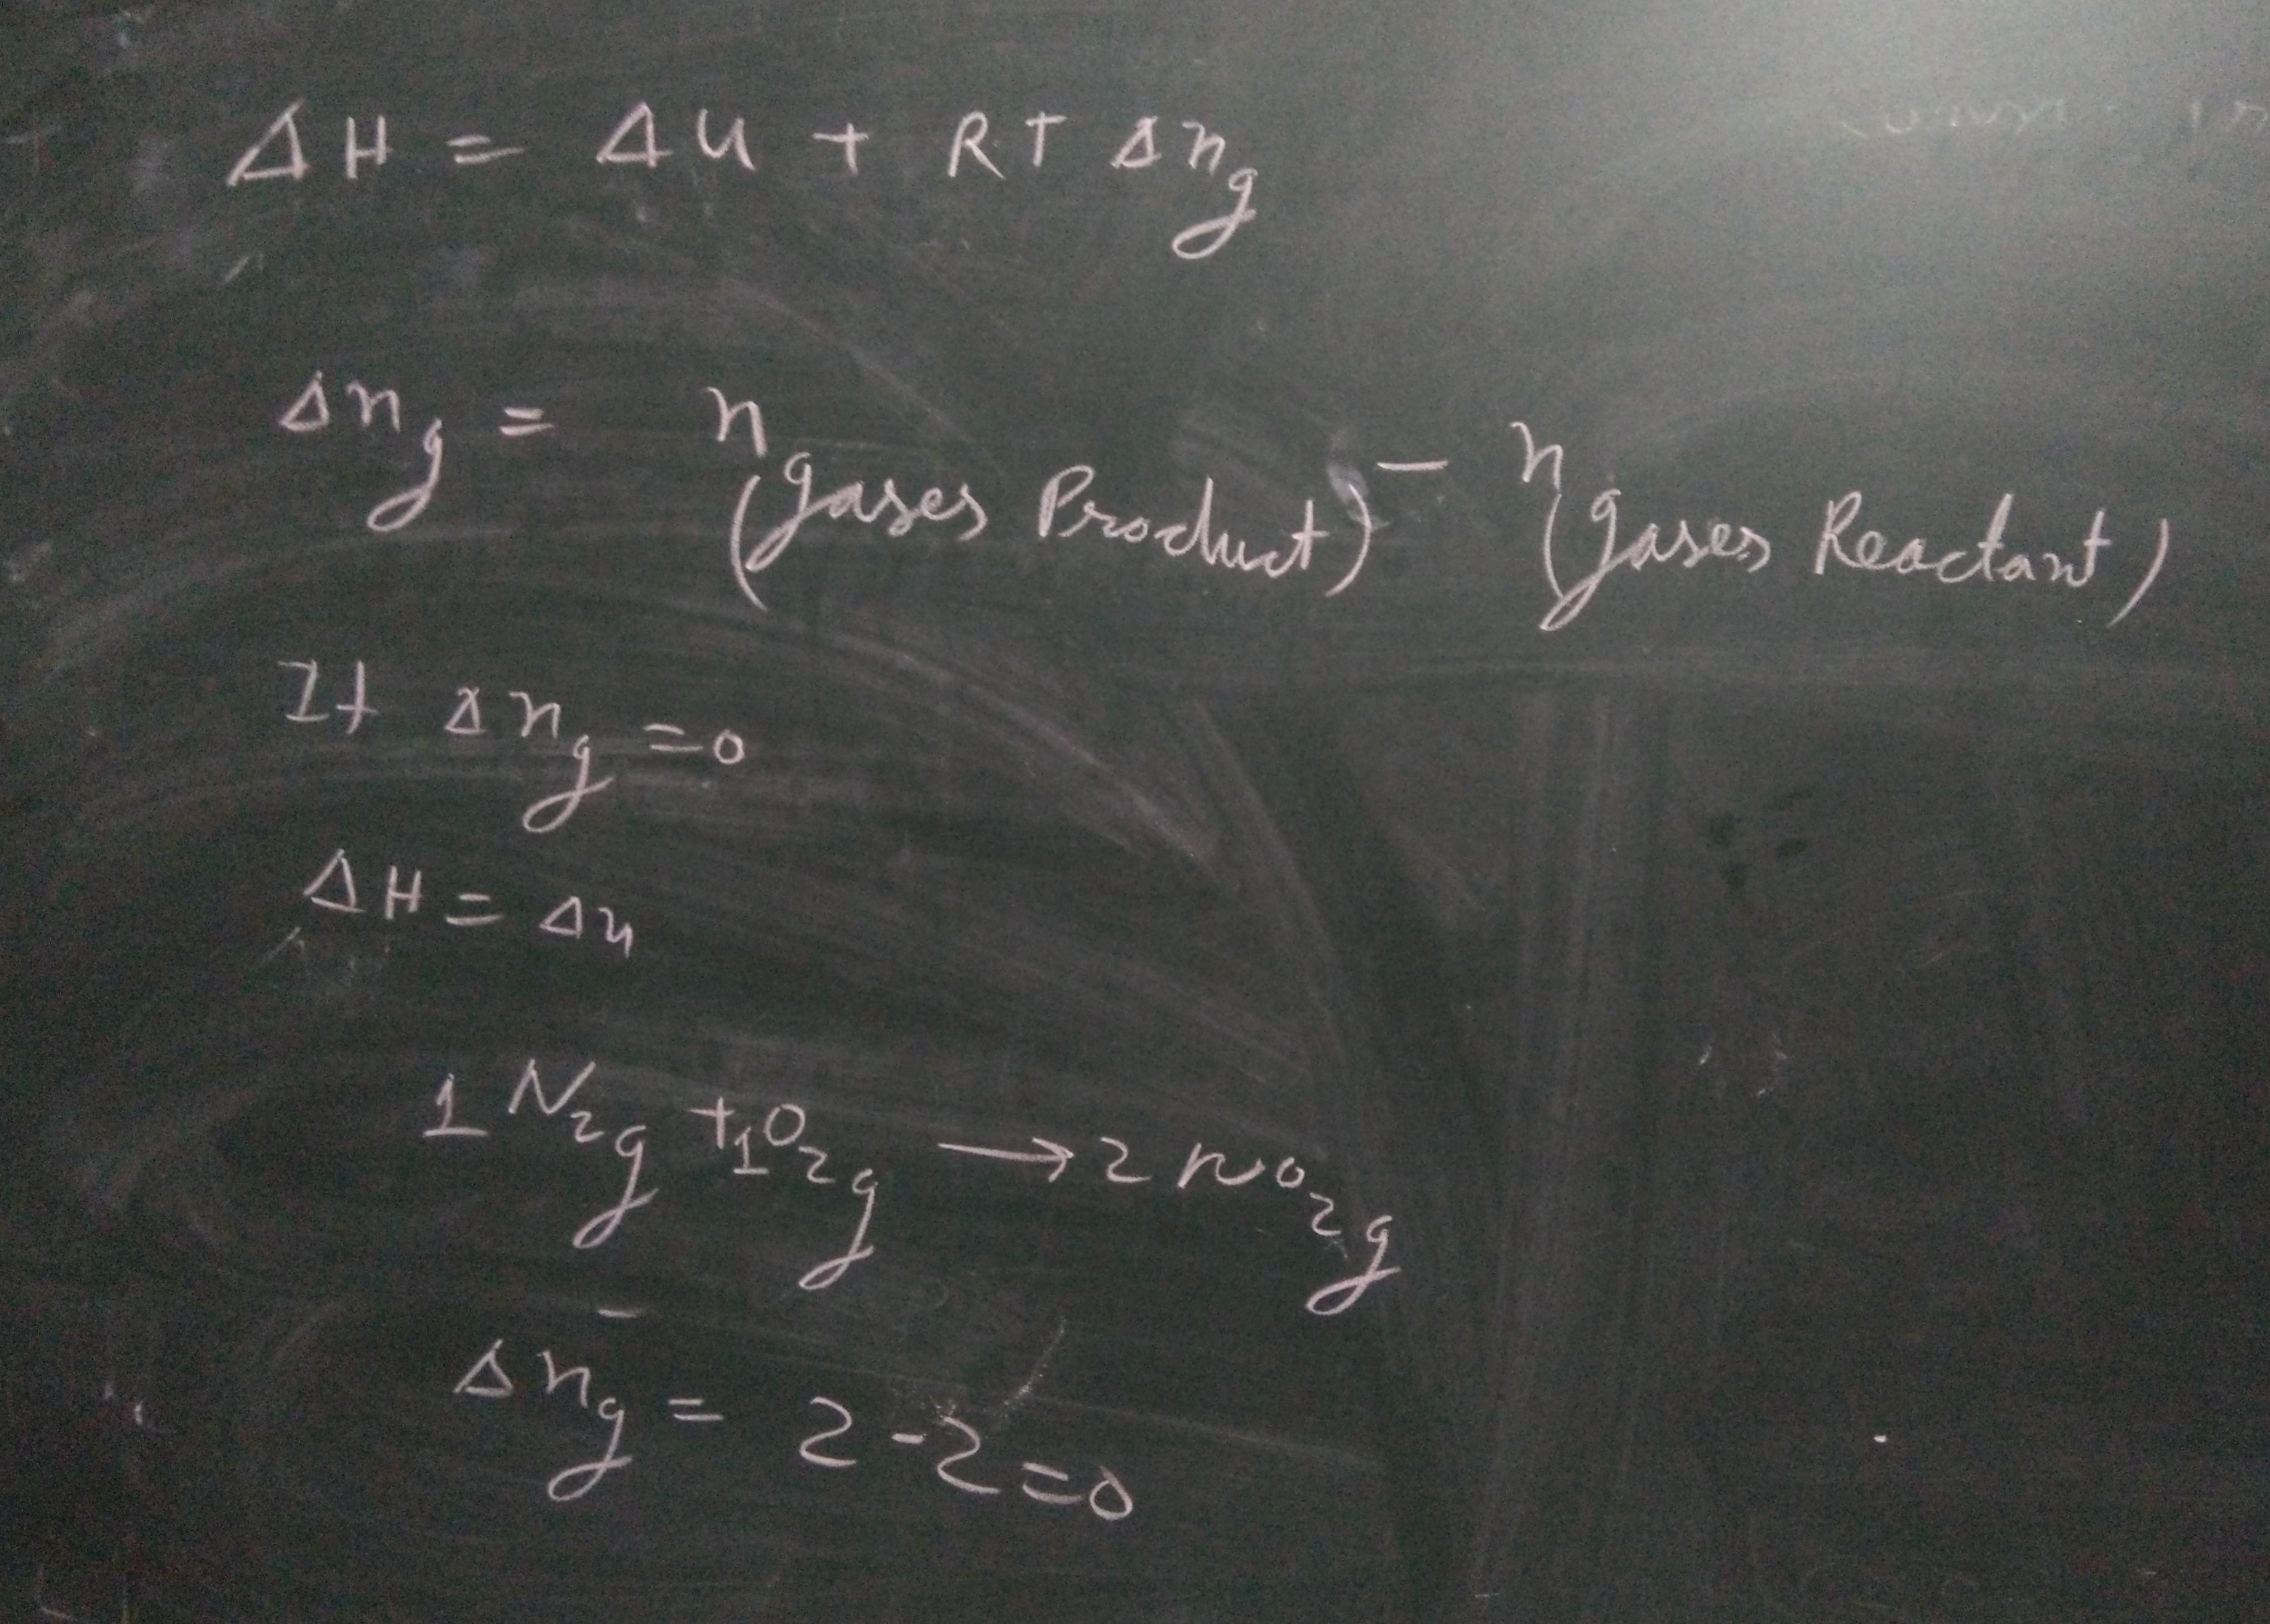 ΔH = ΔU + RT Δng
Δng = n(gases Product) - n(gases Reactant)
If Δng =0
ΔH = Δu
1 N2g +1O2g → 2 NO2g
Δng = 2-2=0